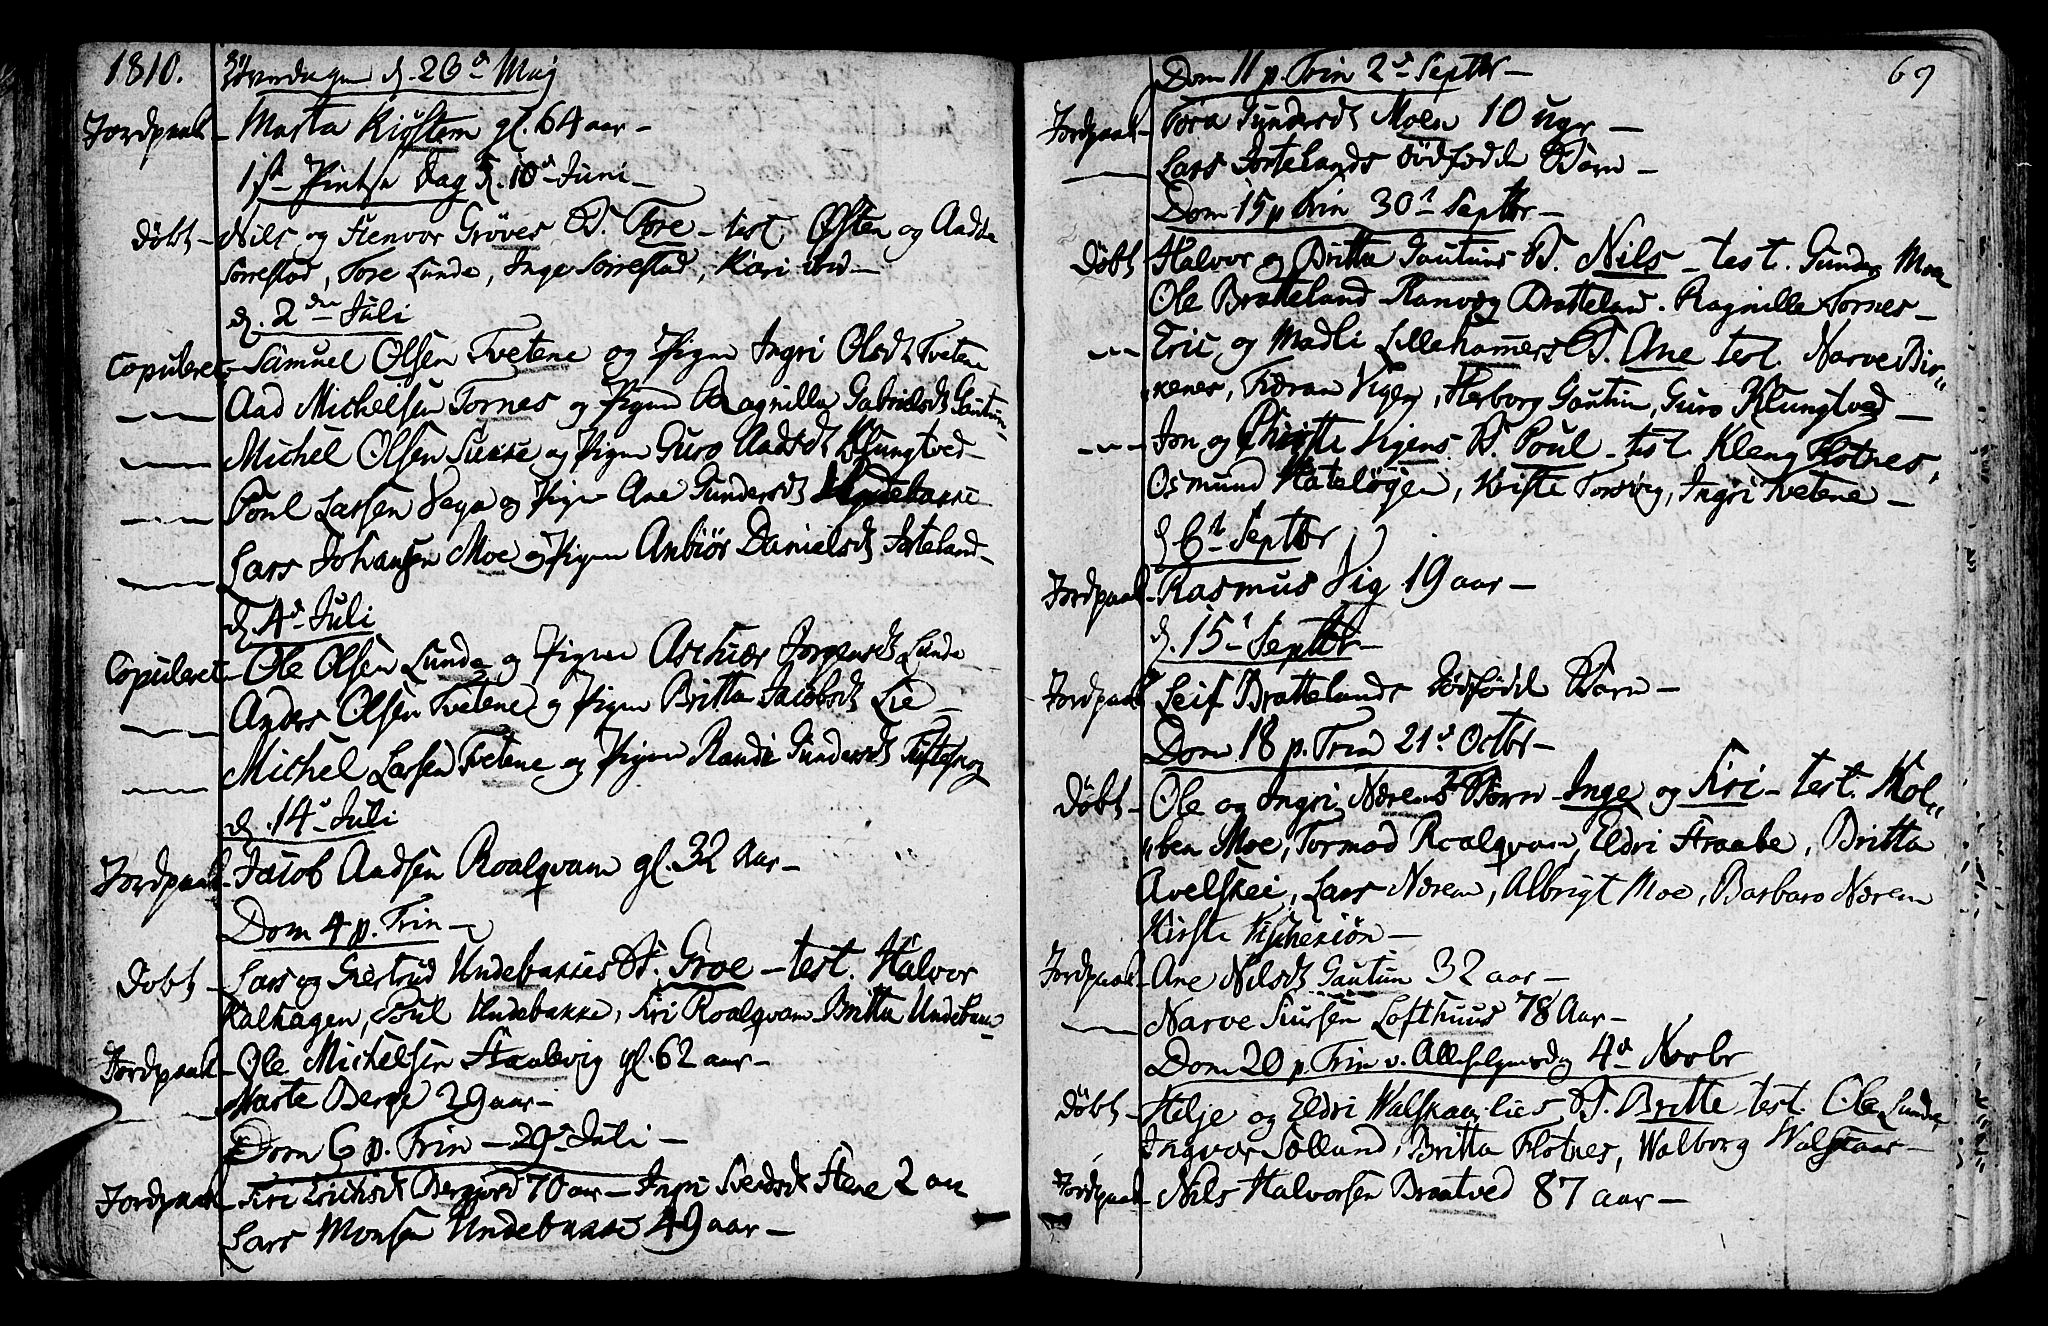 1810. Løverdagen d. 26de Maj
Jordpaak - Marta Kiøstem gl. 64 aar -
1ste Pintse Dag d. 10de Juni -
Døbt - Nils og Stenvor Grøves B. Tore - test. Østen og Aadne
Sørrestad, Tore Lunde, Inge Sørrestad, Kari ibid -
d. 2den Juli
Copuleret - Samuel Olsen Tvetene og Pigen Ingri Olsdt Tvetene
Aad Michelsen Tornes og Pigen Ragnilla Gabrielsdt Gautun
Michel Olsen og Pigen Guro Aadsdt Klungtved -
Poul Larsen Vega og Pigen Ane Gundersdt Undebakke
Lars Johansen Moe og Pigen Anbiør Danielsdt Jorteland -
d. 4de Juli
Copuleret - Ole Olsen Lunde og Pigen Jorgensdt Lunde
Anders Olsen Tvetene og Pigen Britta Jacobsdt Lie -
Michel Larsen Tvetene og Pigen Randi Gundersdt
d. 14de Juli
Jordpaak - Jacob Aadsen Roalqvam gl. 32 Aar -
Dom 4 p. Trin -
Døbt - Lars og Giertrud Undebakkes B. Groe - test. Halvor
Kalhagen, Poul Undebakke, Siri Roalqvam Britta Undebakke
Jordpaak - Ole Michelsen Staalevig gl. 62 aar -
Marte Berge 29 aar -
Dom 6 p. Trin - 29de Juli -
Jordpaak - Siri Erichsdt 70 aar - Ingri Stene 2 aar
Lars Monsen Undebakke 49 aar -
69
Dom 11 p. Trin 2de Septbr -
Jordpaak - Tora Gundersdt Moen 10 uger -
Lars Jortelands dødfødde Barn -
Dom 15 p Trin 30te Septbr -
Døbt - Halvor og Britta Gautuns B. Nils - test. Gunder Moen
Ole Bratteland Ranveg Bratteland. Ragnille Tornes -
Eric og Madli Lillehammers B. Ane test. Narve Bir„
„kenes, Vigen, Herborg Gautun, Guro Klungtved -
Jon og Christe Vigens B. Poul - test. Kleng Flotnes,
Osmund Hateløgen, Kriste Torsvig, Ingri Tvetene -
d 6te Septbr
Jordpaak - Rasmus Vig 19 aar -
d. 15de Septbr -
Jordpaak - Leif Brattelands Dødfødde Barn -
Dom 18 p. Trin 21de Octbr -
Døbt - Ole og Ingri Nærems 2 Børn - Inge og Siri - test. Kol„
„ben Moe, Tormod Roalqvam, Eldri Straabe, Britta
Avelskei, Lars Nærem, Albrigt Moe, Barbaro Nærem
Kirste
Jordpaak - Ane Nilsdt Gautun 32 aar -
Narve Siursen Lofthuus 78 Aar -
Dom 20 p. Trin v. Allehelgensdag 4de Novbr
Døbt - Helje og Eldri B. Britte test. Ole Lunde
Ingvor Sølland, Britta Flotnes, Walborg Walskaar -
Jordpaak - Nils Halvorsen Braatved 87 aar -